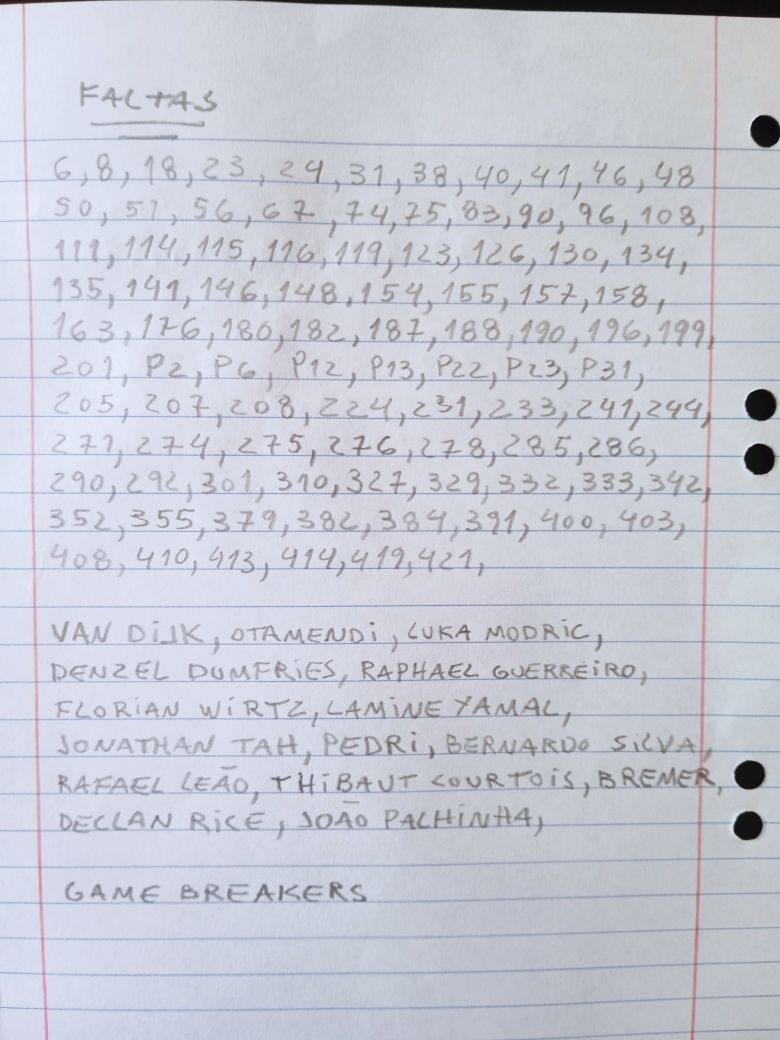 FALTAS
6, 8, 18, 23, 24, 31, 38, 40, 41, 46, 48
50, 51, 56, 67, 74, 75, 83, 90, 96, 108,
111, 114, 115, 116, 119, 123, 126, 130, 134,
135, 141, 146, 148, 154, 155, 157, 158,
163, 176, 180, 182, 187, 188, 190, 196, 199,
201, P2, P6, P12, P13, P22, P23, P31,
205, 207, 208, 224, 231, 233, 241, 244,
271, 274, 275, 276, 278, 285, 286,
290, 292, 301, 310, 327, 329, 332, 333, 342,
352, 355, 379, 382, 384, 391, 400, 403,
408, 410, 413, 414, 419, 421,
VAN DIJK, OTAMENDI, LUKA MODRIC,
DENZEL DUMFRIES, RAPHAEL GUERREIRO,
FLORIAN WIRTZ, LAMINE YAMAL,
JONATHAN TAH, PEDRI, BERNARDO SILVA,
RAFAEL LEÃO, THIBAUT COURTOIS, BREMER,
DECLAN RICE, JOÃO PALHINHA,
GAME BREAKERS